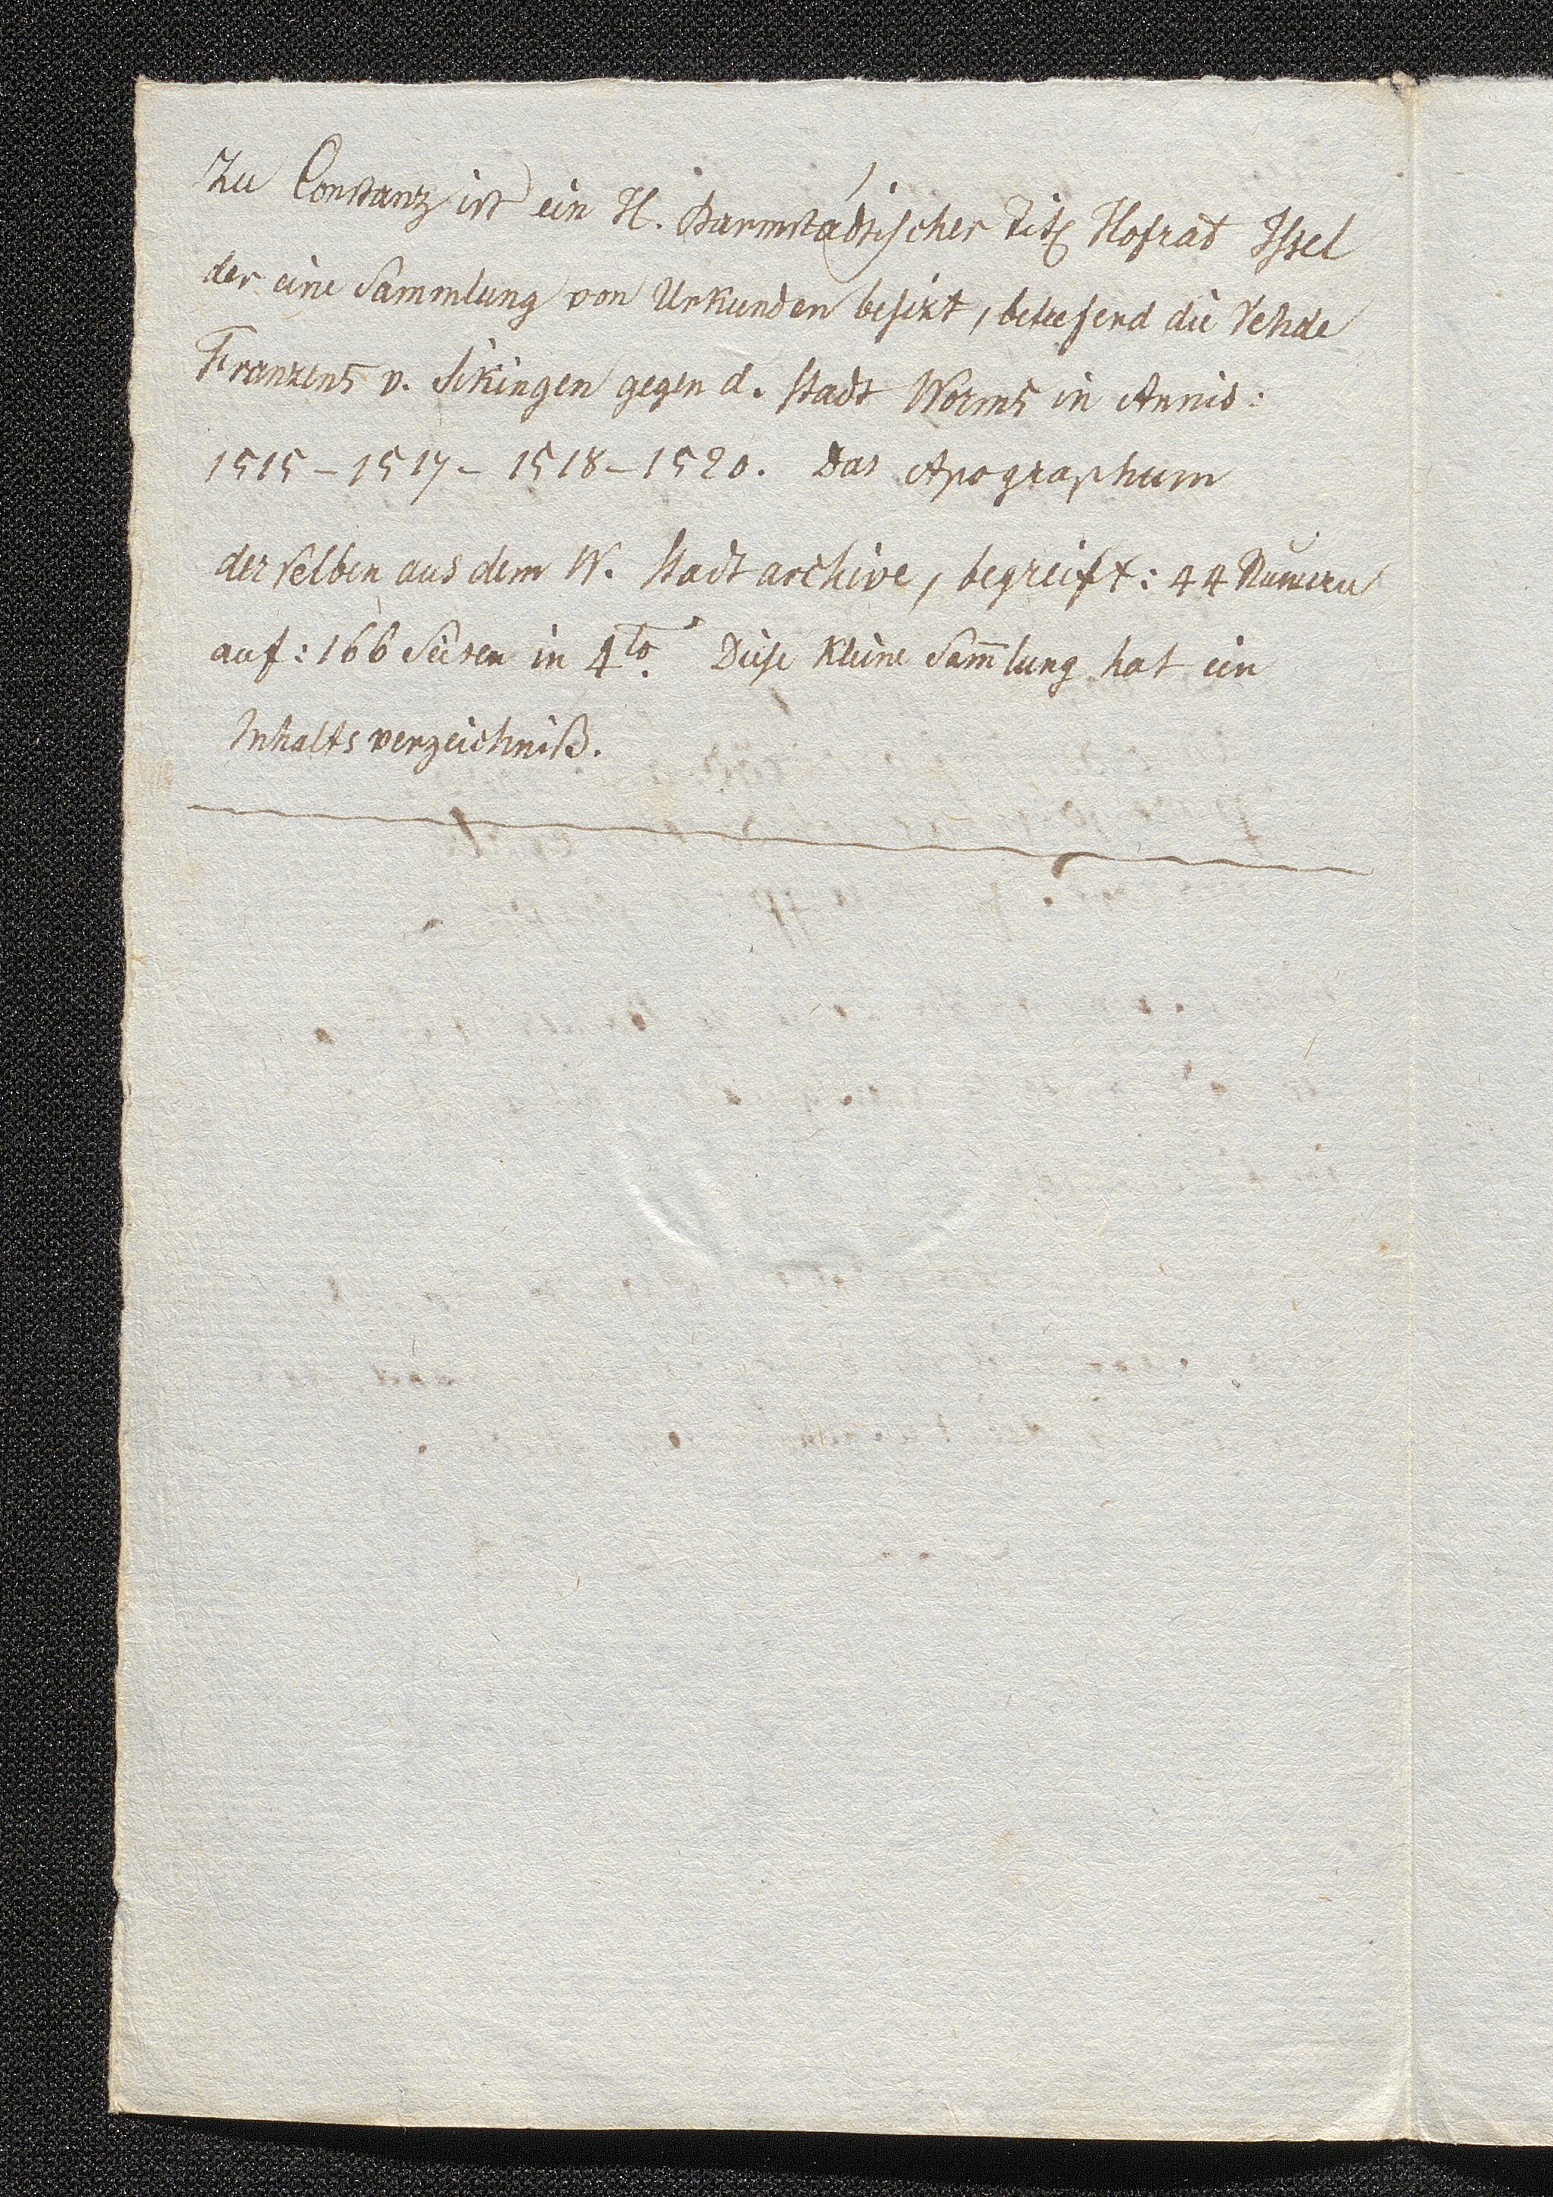 Zu Constanz ist ein H. Darmstädtischer Tit. Hofrat Issel
der eine Sammlung von Urkunden besizt, betrefend die Vehde
Franzens v. Sikingen gegen d. Stadt Worms in Annis:
1515 – 1517 – 1518 – 1520. Das Apographum
derselben aus dem W. Stadtarchive, begreift: 44 Numern
auf: 166 Seiten in 4to. Diese kleine Sam̄lung hat ein
Inhaltsverzeichniß.